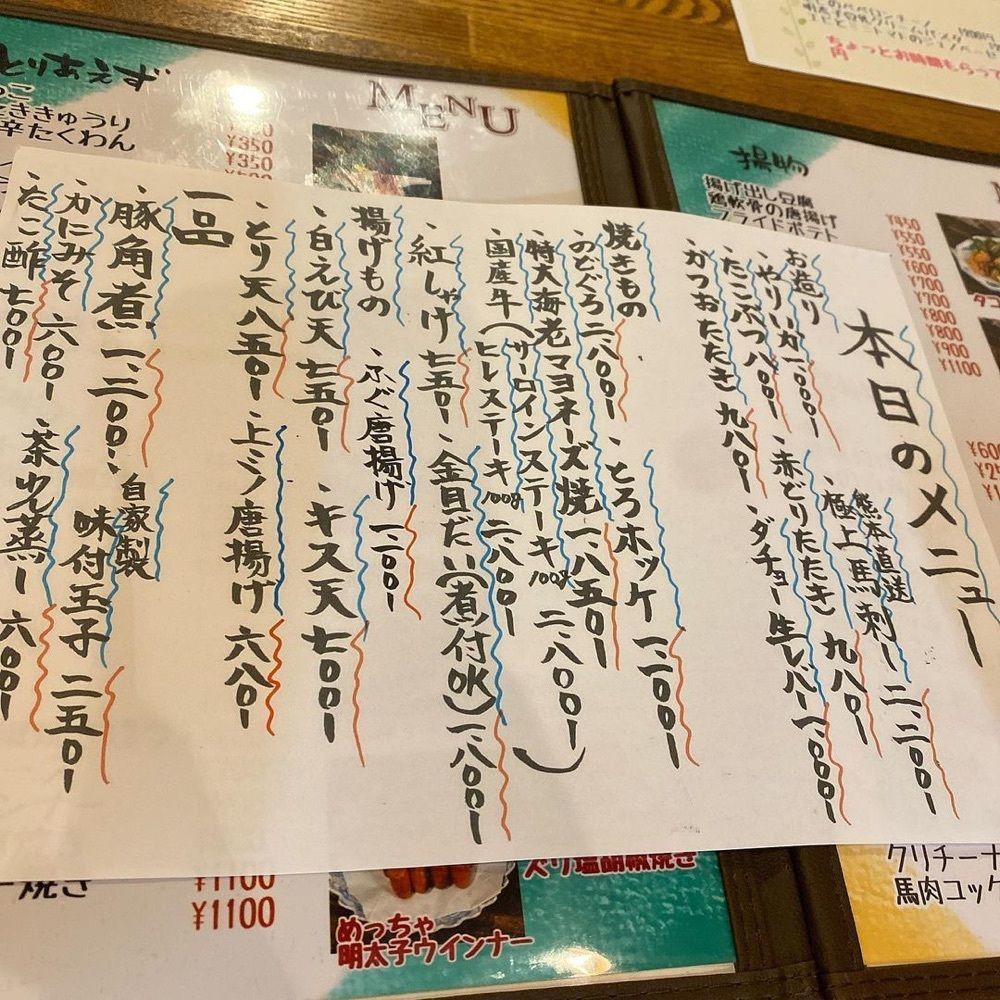 本日のメニュー
お造り
熊本直送
極上馬刺し 二、三〇〇ー
・やりいか 一、〇〇〇ー
・赤どりたたき 九八〇ー
・たこぶつ 八〇〇ー
・ダチョー生レバー 一、〇〇〇ー
・かつおたたき 九八〇ー
焼きもの
・とろホッケ 一、二〇〇ー
・のどぐろ 二、八〇〇ー
・特大海老マヨネーズ焼 一、八五〇ー
・国産牛(サーロインステーキ100g 二、八〇〇ー)
ヒレステーキ100g 二、八〇〇ー
・紅しゃけ 七五〇ー
・金目だい(煮付OK) 一、八〇〇ー
揚げもの
・ふぐ唐揚げ 一、二〇〇ー
・白えび天 七五〇ー
・キス天 七〇〇ー
・とり天 八五〇ー
・上ミノ唐揚げ 六八〇ー
一品
・豚角煮 一、二〇〇ー
・自家製
味付玉子 二五〇ー
・かにみそ 六〇〇ー
・たこ酢 七〇〇ー
・茶わん蒸し 六〇〇ー
とりあえず
MENU
たくわん
¥350
¥350
揚物
揚げ出し豆腐
鶏軟骨の唐揚げ
フライドポテト
¥450
¥550
¥550
¥600
¥700
¥700
¥800
¥800
¥900
¥1100
ちょっとお時間もらうて
円
ー焼き
¥1100
¥1100
めっちゃ
明太子ウインナー
ズリ塩胡椒焼き
クリチーナ
馬肉コック